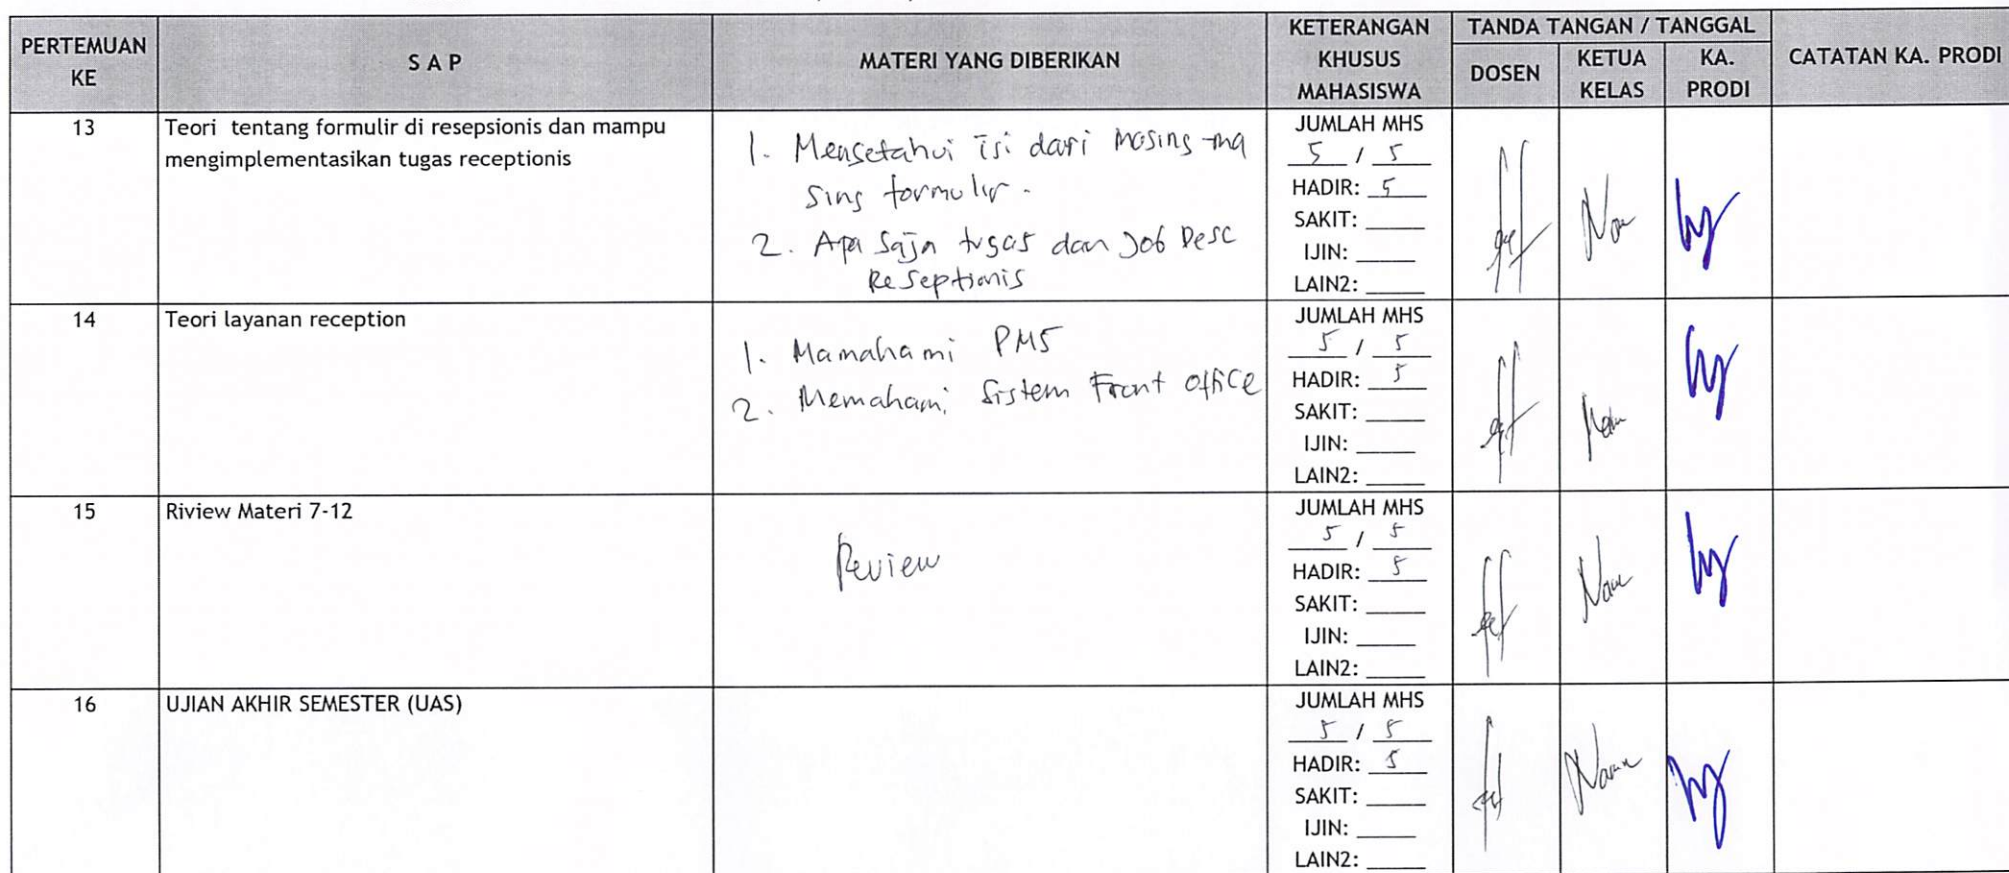 PERTEMUAN KE
S A P
MATERI YANG DIBERIKAN
KETERANGAN KHUSUS MAHASISWA
TANDA TANGAN / TANGGAL
DOSEN
KETUA KELAS
KA. PRODI
CATATAN KA. PRODI
13
Teori tentang formulir di resepsionis dan mampu
mengimplementasikan tugas receptionis
1. Mengetahui isi dari masing-ma
sing formulir.
2. Apa saja tugas dan Job Desc
Reseptionis
JUMLAH MHS
5 / 5
HADIR: 5
SAKIT:
IJIN:
LAIN2:
14
Teori layanan reception
1. Mamahami PMS
2. Memahami Sistem Front office
JUMLAH MHS
5 / 5
HADIR: 5
SAKIT:
IJIN:
LAIN2:
15
Riview Materi 7-12
Review
JUMLAH MHS
5 / 5
HADIR: 5
SAKIT:
IJIN:
LAIN2:
16
UJIAN AKHIR SEMESTER (UAS)
JUMLAH MHS
5 / 5
HADIR: 5
SAKIT:
IJIN:
LAIN2: